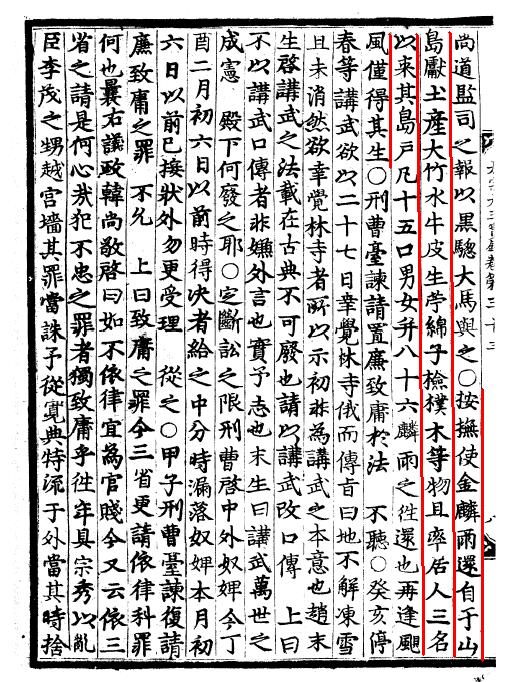 尚道監司之報以黑驄大馬與之〇按撫使金麟雨還自于山
島獻土産大竹水牛皮生苧綿子檢樸木等物且率居人三名
以來其島戶凡十五口男女幷八十六麟雨之往還也再逢颶
風僅得其生〇刑曹臺諫請置廉致庸於法 不聽〇癸亥停
春等講武欲以二十七日幸覺林寺俄而傳旨曰地不解凍雪
且未消然欲幸覺林寺者所以示初非爲講武之本意也趙末
生啓講武之法載在古典不可廢也請以講武改口傳 上曰
不以講武口傳者非嫌外言也實予志也末生曰講武萬世之
成憲 殿下何廢之耶〇定斷訟之限刑曹啓中外奴婢今丁
酉二月初六日以前時得決者給之中分時漏落奴婢本月初
六日以前已接狀外勿更受理 從之〇甲子刑曹臺諫復請
廉致庸之罪 不允 上曰致庸之罪今三省更請依律科罪
何也曩右議政韓尚敬啓曰如不依律宜爲官賤今又云依三
省之請是何心哉犯不忠之罪者獨致庸乎往年具宗秀以亂
臣李茂之甥越宮墻其罪當誅予從寬典特流于外當其時捨